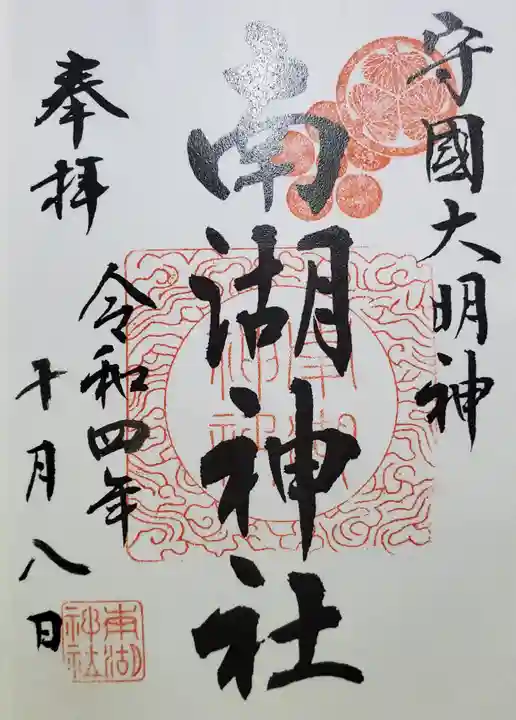 守國大明神
南湖神社
奉拝
令和四年
十月八日
南湖
神社
南湖
神社